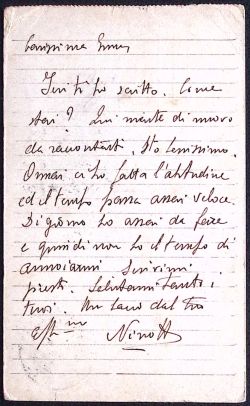 Carissima Emmy,
Ieri ti ho scritto. Come
stai? Qui niente di nuovo
da raccontarti. Sto benissimo.
Ormai ci ho fatta l'abitudine
ed il tempo passa assai veloce.
Di giorno ho assai da fare
e quindi non ho il tempo di
annoiarmi. Scrivimi
presti. Salutami tanto i
tuoi. Un bacio dal tuo
Aff.mo Nino